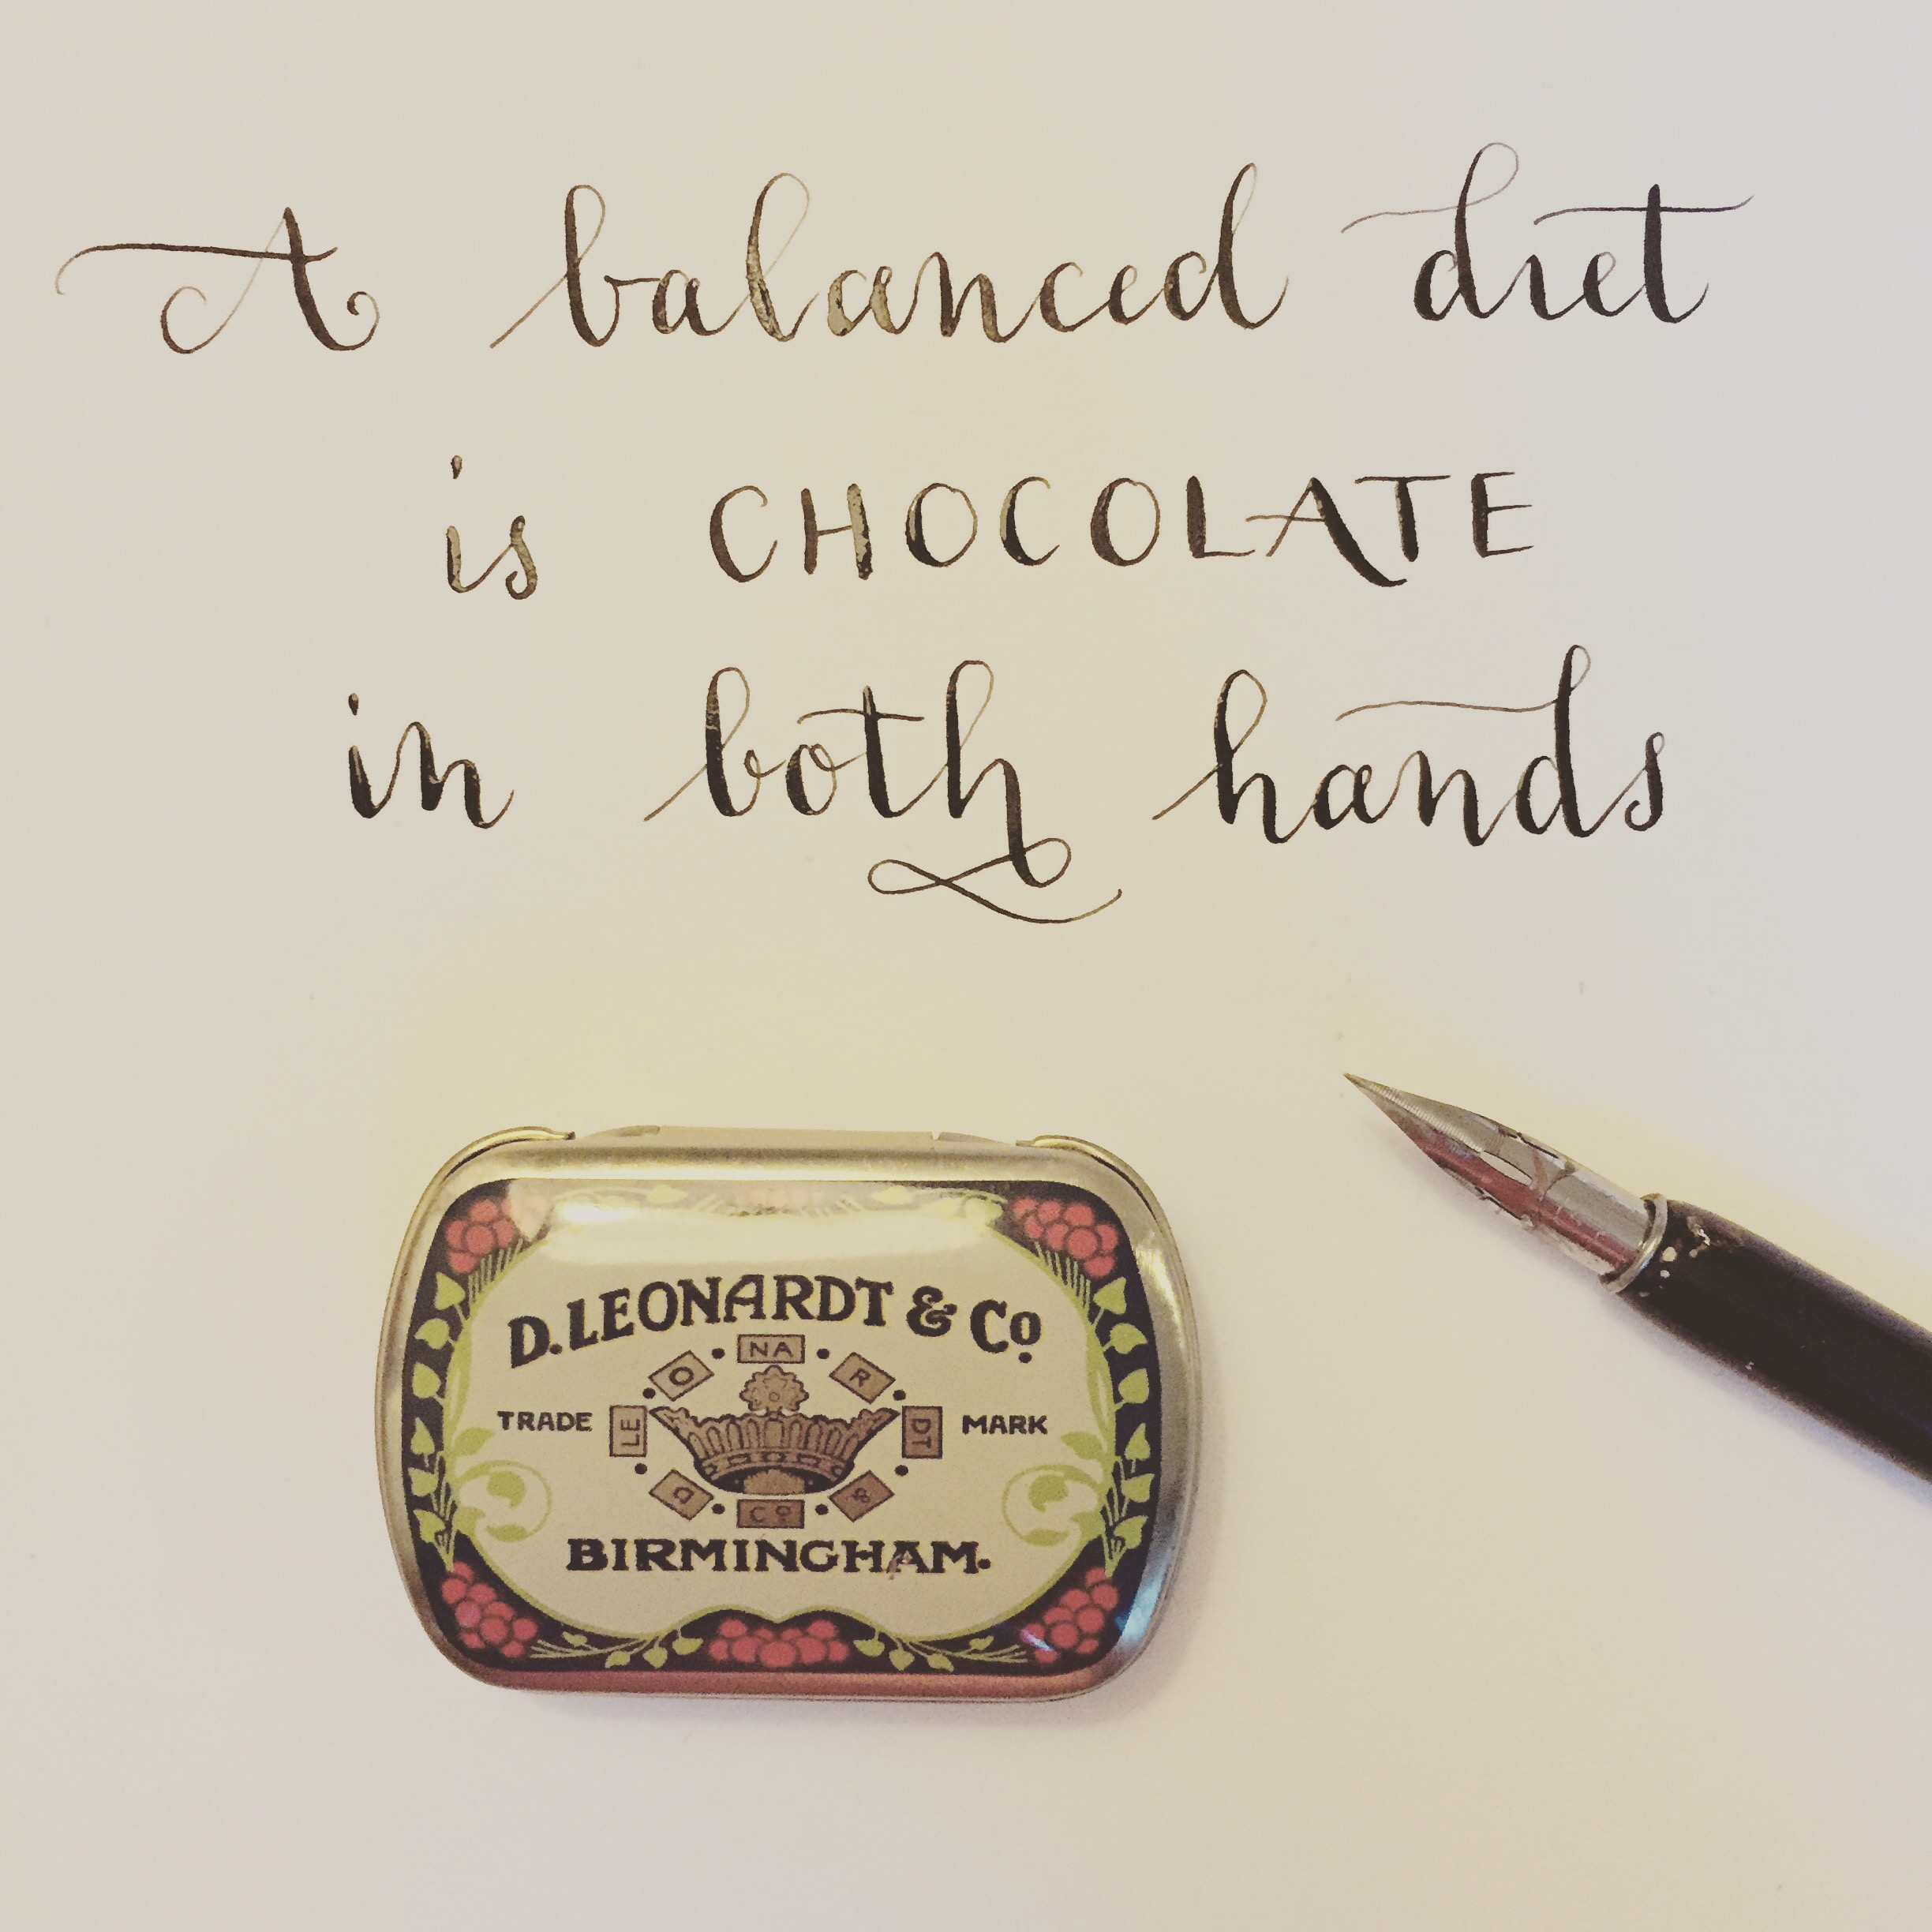 A balanced diet
is CHOCOLATE
in both hands
D. LEONARDT & Co.
NA
O R
TRADE LE DT MARK
D &
Co
BIRMINGHAM.